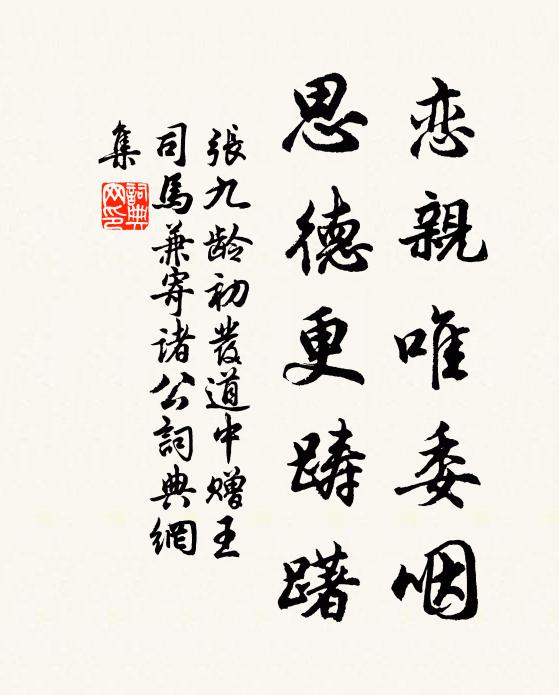 恋親唯委咽
思德更踌躇
張九齡初發道中赠王
司馬兼寄诸公詞典網
集
詞典
网印